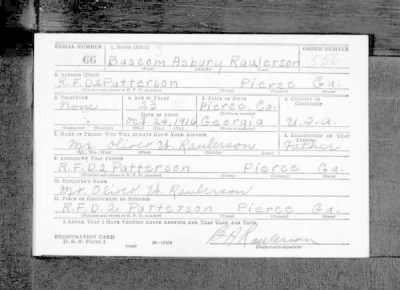 SERIAL NUMBER 1. NAME (Print) ORDER NUMBER
66 Bascom Asbury Raulerson 556
(First) (Middle) (Last)
2. ADDRESS (Print)
R.F.D.2 Patterson Pierce Ga.
3. TELEPHONE 4. AGE IN YEARS 5. PLACE OF BIRTH 6. COUNTRY OF CITIZENSHIP
None 22 Pierce, Co.
DATE OF BIRTH
Oct 24, 1918 Georgia U.S.a
7. NAME OF PERSON WHO WILL ALWAYS KNOW YOUR ADDRESS 8. RELATIONSHIP OF THAT PERSON
Mr. Oliver W. Raulerson Father
9. ADDRESS OF THAT PERSON
R.F.D.2 Patterson Pierce Ga.
10. EMPLOYER'S NAME
Mr. Oliver W. Raulerson
11. PLACE OF EMPLOYMENT OR BUSINESS
R.F.D. 2 Patterson Pierce Ga.
I AFFIRM THAT I HAVE VERIFIED ABOVE ANSWERS AND THAT THEY ARE TRUE.
REGISTRATION CARD
D. S. S. FORM 1
B A Raulerson